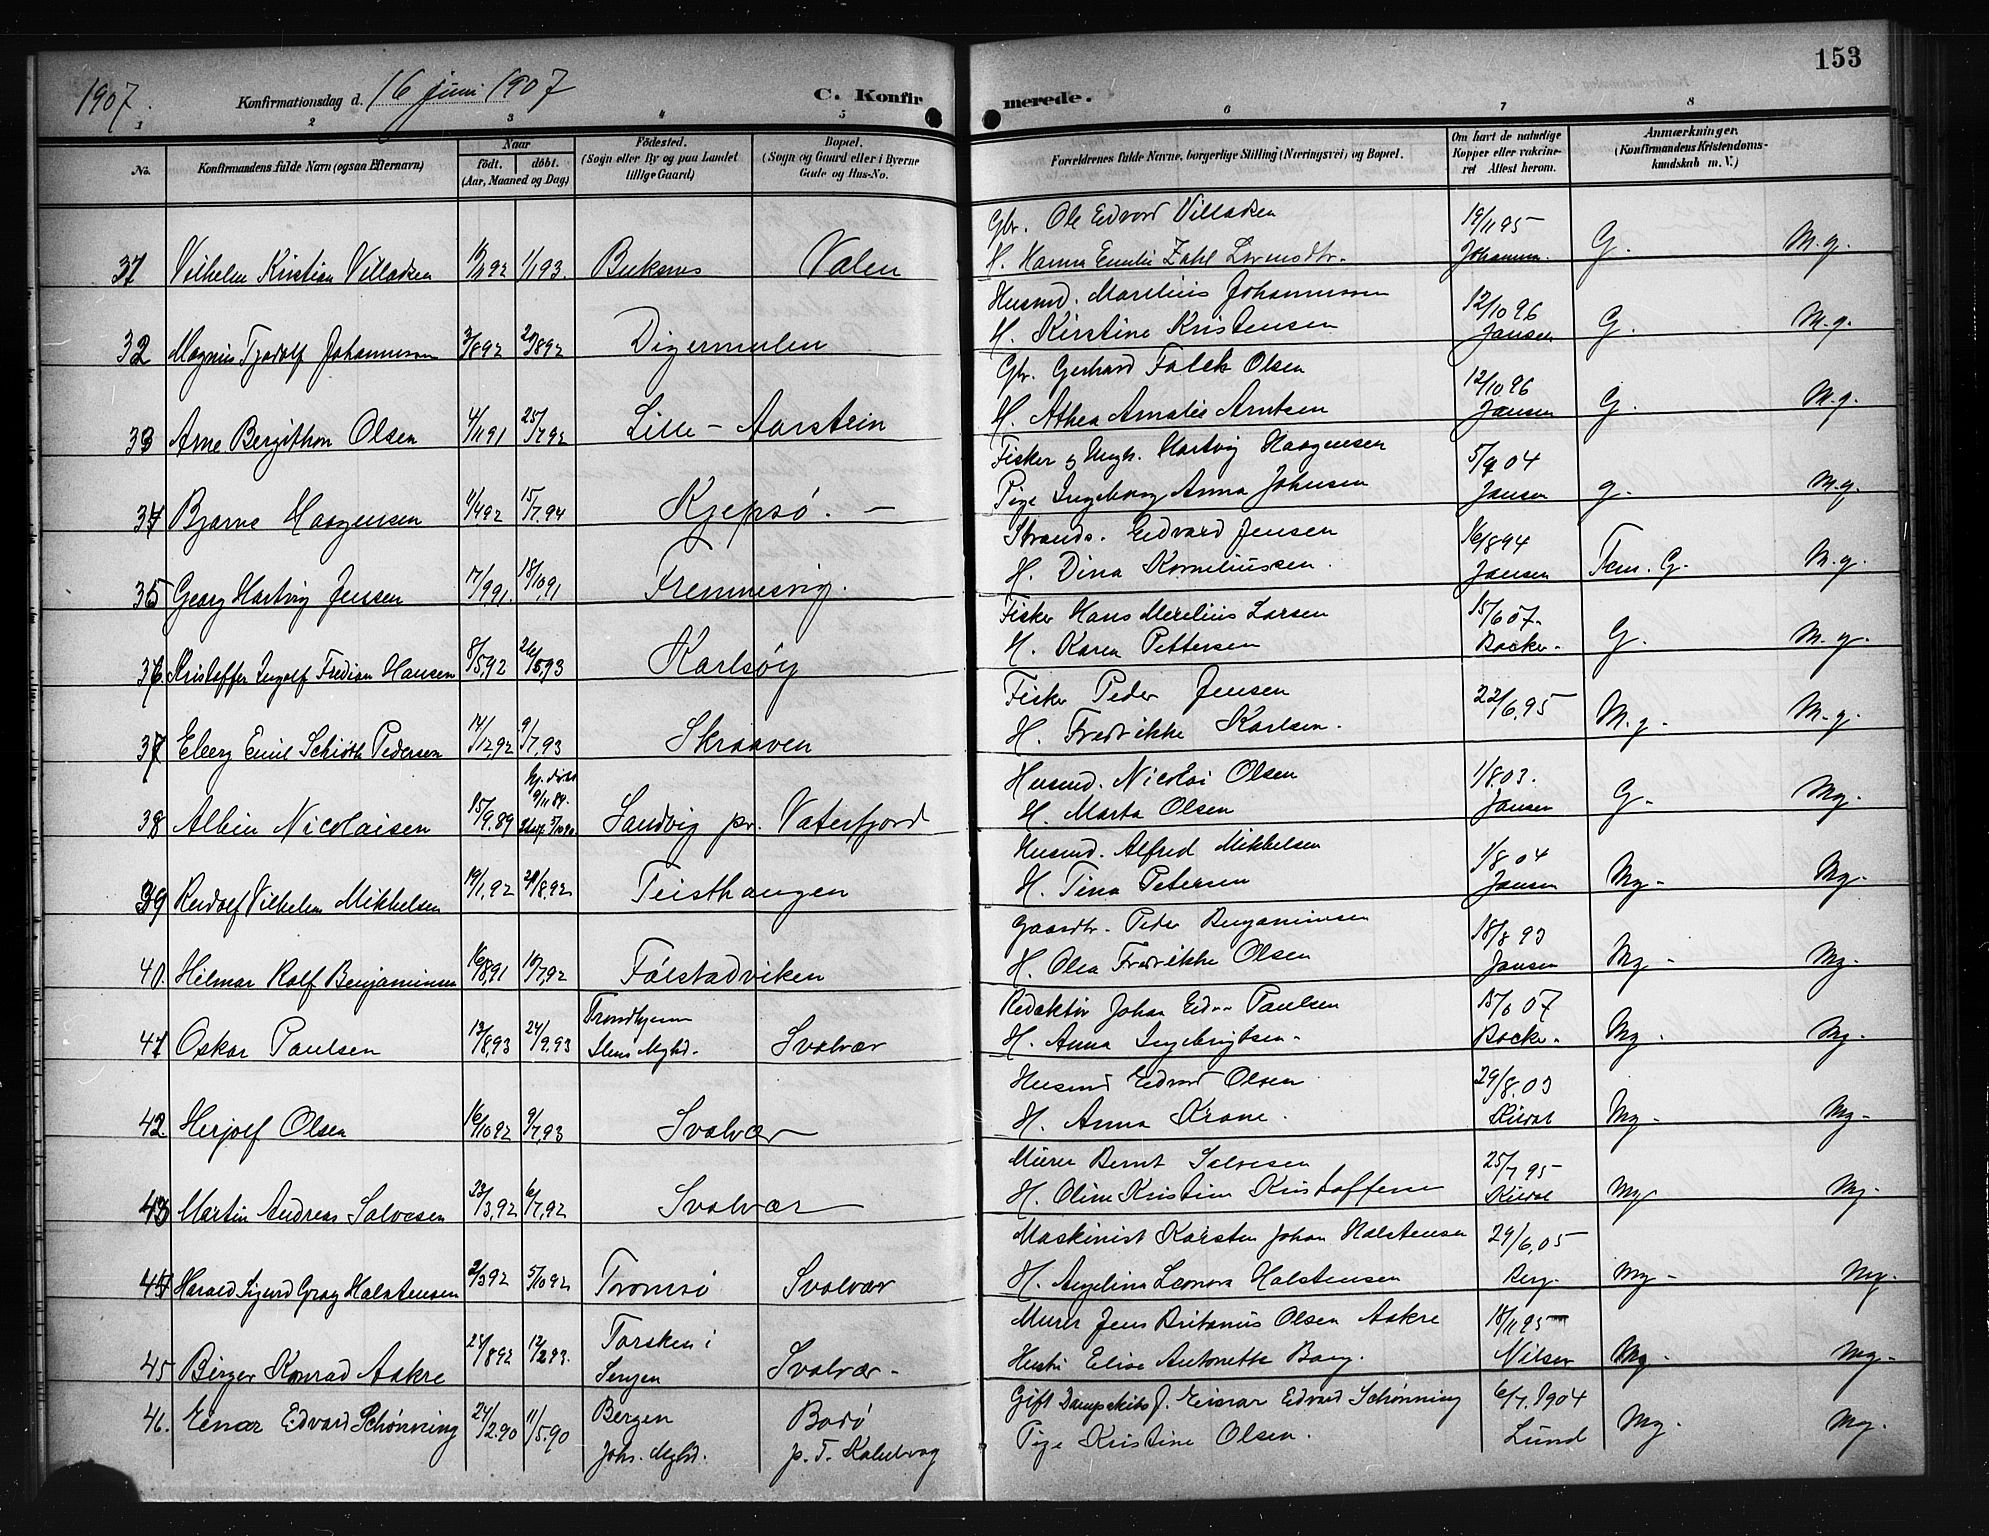 153
1907.
Konfirmationsdag d. 16 juni 1907
C. Konfirmerede.
1 2 3 4 5 6 7 8
No.
Konfirmandens fulde Navn (ogsaa Efternavn)
Naar
født. døbt.
(Aar, Maaned og Dag)
Fødested.
(Sogn eller By og paa Landet
tillige Gaard)
Bopæl.
(Sogn og Gaard eller i Byerne
Gade og Hus-No.
Forældrenes fulde Navne, borgerlige Stilling (Næringsvei) og Bopæl.
Om havt de naturlige
Kopper eller vakcine-
ret Attest herom.
Anmærkninger.
(Konfirmandens Kristendoms-
kundskab m. V.)
Gbr. Ole Edvard Villadsen 19/11 95
31 Vilhelm Kristian Villadsen 1/1 93. Buksnes Valen H. Hanna Emilie Zahl Johannes. G. M.g.
Husmd. Marelius Johannessen 12/10 96
32 Magnus Tjodolf Johannessen 3/8 92 Digermulen H. Kirstine Kristensen Jansen G. M.g.
Gbr. Gerhard Falck Olsen 12/10 96
33 Arne Bergithon Olsen 4/11 91 25/7 92 Lille-Aarstein H. Althea Amalie Arntsen Jansen G. M.g.
Fisker og Ungk. Hartvig Haagensen 5/9 04
34 Bjarne Haagensen 4/4 92 15/7.94 Kjepsø. – Pige Ingeborg Anna Johnsen Jansen g. M.g.
Strands. Edvard Jensen 16/8 94
35 Georg Hartvig Jenssen 17/9 91. 18/10.91 Fremmesvig. H. Dina Korneliussen. Jansen Tem. G. M.g.
Fisker Hans Merelius Larsen 15/6 07.
36 Kristoffer Ingolf Fredian Hansen 8/5.92 26/5.93 Karlsøy H. Karen Pettersen Backer. G. M.g.
Fisker Peder Jensen 22/6.95
37 Eberg Emil Schiøth Pedersen 14/12.92 9/7.93 Skraaven H. Fredrikke Karlsen. M.g. M.g.
Hj. døbt
9/11 89. Husmd. Nicolai Olsen 1/8.03.
38 Albin Nicolaisen 15/9.89 Sandvig pr. Vaterfjord H. Marta Olsen Jansen G. Mg.
Husmd. Alfred Mikkelsen 1/8.04
39 Rudolf Vilhelm Mikkelsen 19/1.92 21/8.92 Teisthaugen H. Tina Petersen Jansen Mg. Mg.
Gaardbr. Peder Benjaminsen 18/8 93
40. Hilmar Rolf Benjaminsen 16/8.91 10/7.92 Følstadviken H. Olea Fredrikke Olsen Jansen Mg. Mg.
Trondhjem Redaktør Johan Edv. Paulsen 15/6 07
41 Oskar Paulsen 13/8.93 24/9.93 Ilens Mghd. Svolvær H. Anna Ingebrigtsen. Backer. Mg. Mg.
Husmd Edvard Olsen 29/8.03
42. Herjolf Olsen 16/10 92 9/7.93 Svolvær H. Anna Krane. Mg. Mg.
Murer Bernt Salvesen 25/7.95
43 Martin Andreas Salvesen 23/3.92 6/7.92 Svolvær H. Oline Kristine Kristoffersen Mg Mg.
Maskinist Karsten Johan Halstensen 29/6.05
44 Harald Sigurd Gray Halstensen 2/3 92 5/10 92 Tromsø Svolvær H. Angelina Leonora Halstensen Berg. Mg. Mg.
Torsken i Murer Jens Britanus Olsen Aakre 18/11 95
45 Birger Konrad Aakre 25/8 92 12/2 93. Senjen Svolvær. Hustru Elise Antonette Bang. Nilsen Mg. Mg.
Bergen Bodø Gift Dampskibsf. Einar Edvard Schønning 6/7.1904
46. Einar Edvard Schønning 24/2.90 11/5.90 Johs. Mghd. p.T. Kabelvaag Pige Kristine Olsen. Lund Mg. Mg.